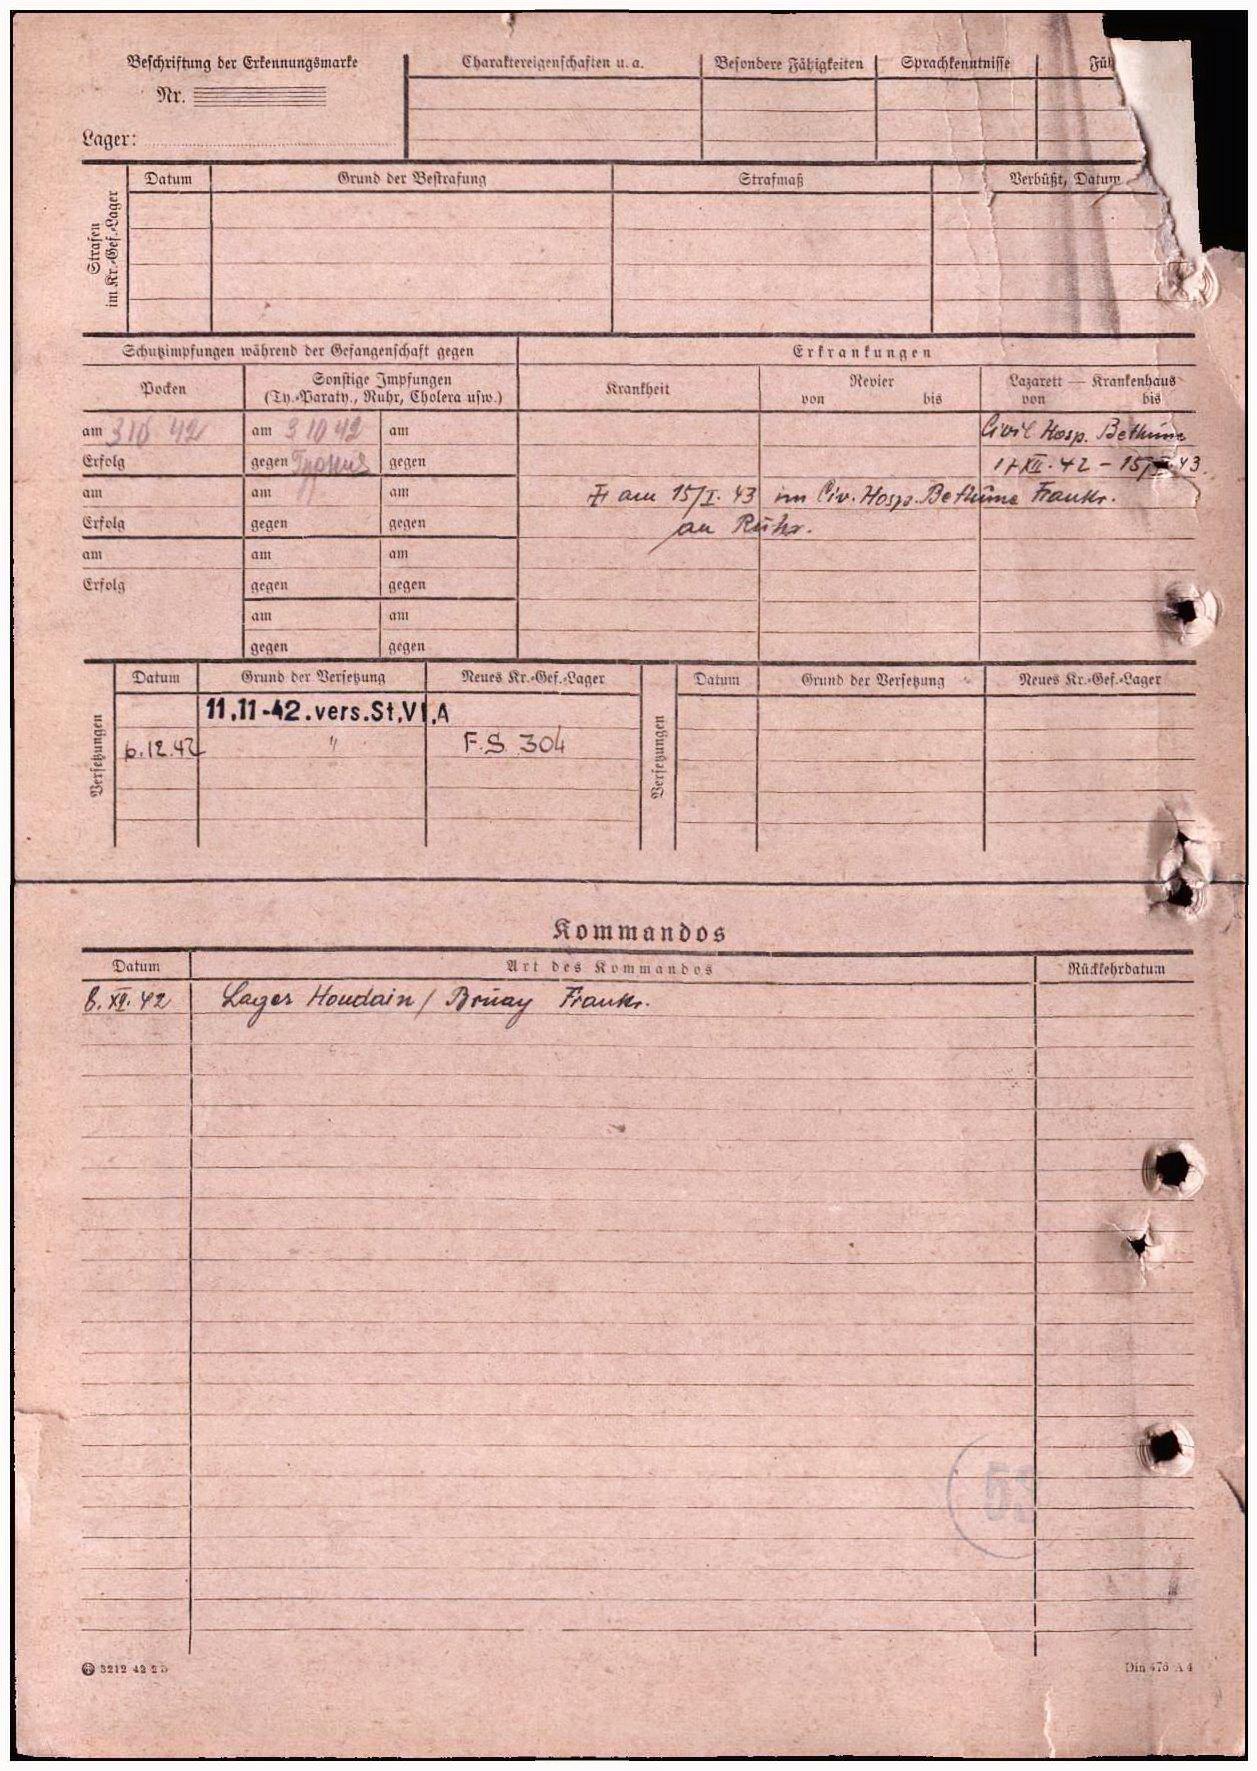 Beschriftung der Erkennungsmarke
Nr.
Lager:
Charaktereigenschaften u. a. Besondere Fähigkeiten Sprachkenntnisse Füh
Strafen im Kr.-Gef.-Lager
Datum Grund der Bestrafung Strafmaß Verbüßt, Datum
Schutzimpfungen während der Gefangenschaft gegen Erkrankungen
Pocken Sonstige Impfungen (Ty.-Paraty., Ruhr, Cholera usw.) Krankheit Revier von bis Lazarett — Krankenhaus von bis
am 3 10 42 am 3 10 42 am Civil Hosp. Bethune
Erfolg gegen gegen 17 XII. 42 – 15/I. 43.
am am am ‡ am 15/I. 43 im Civ. Hosp. Bethune Frankr.
Erfolg gegen gegen an Ruhr.
am am am
Erfolg gegen gegen
am am
gegen gegen
Versetzungen
Datum Grund der Versetzung Neues Kr.-Gef.-Lager
11.11-42.vers.St.VI.A
6.12.42 " F.S. 304
Versetzungen
Datum Grund der Versetzung Neues Kr.-Gef.-Lager
Kommandos
Datum Art des Kommandos Rückkehrdatum
8. XII. 42 Lager Houdain / Bruay Frankr.
3212 42 2 D
Din 476 A 4